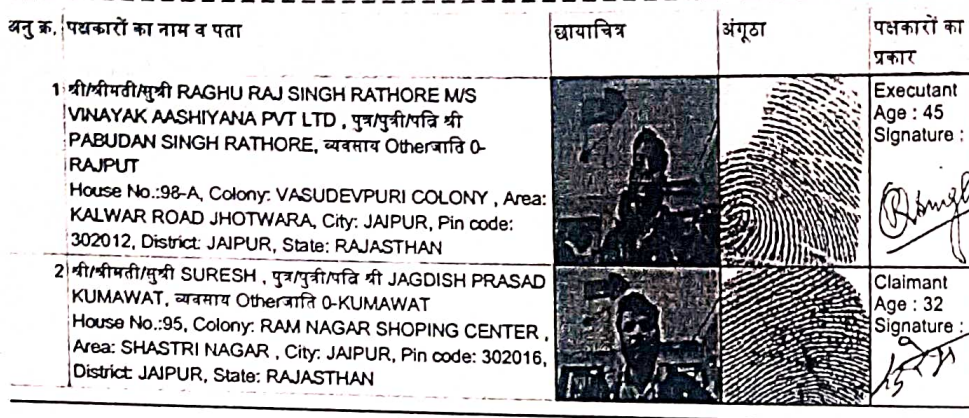 अनु क्र. पक्षकारों का नाम व पता छायाचित्र अंगूठा पक्षकारों का
प्रकार
1 श्री/श्रीमती/सुश्री RAGHU RAJ SINGH RATHORE M/S
VINAYAK AASHIYANA PVT LTD , पुत्र/पुत्री/पत्नि श्री
PABUDAN SINGH RATHORE, व्यवसाय Otherजाति 0-
RAJPUT
House No.:98-A, Colony: VASUDEVPURI COLONY , Area:
KALWAR ROAD JHOTWARA, City: JAIPUR, Pin code:
302012, District: JAIPUR, State: RAJASTHAN
Executant
Age : 45
Signature :
2 श्री/श्रीमती/सुश्री SURESH , पुत्र/पुत्री/पति श्री JAGDISH PRASAD
KUMAWAT, व्यवसाय Otherजाति 0-KUMAWAT
House No.:95, Colony: RAM NAGAR SHOPING CENTER ,
Area: SHASTRI NAGAR , City: JAIPUR, Pin code: 302016,
District: JAIPUR, State: RAJASTHAN
Claimant
Age : 32
Signature :